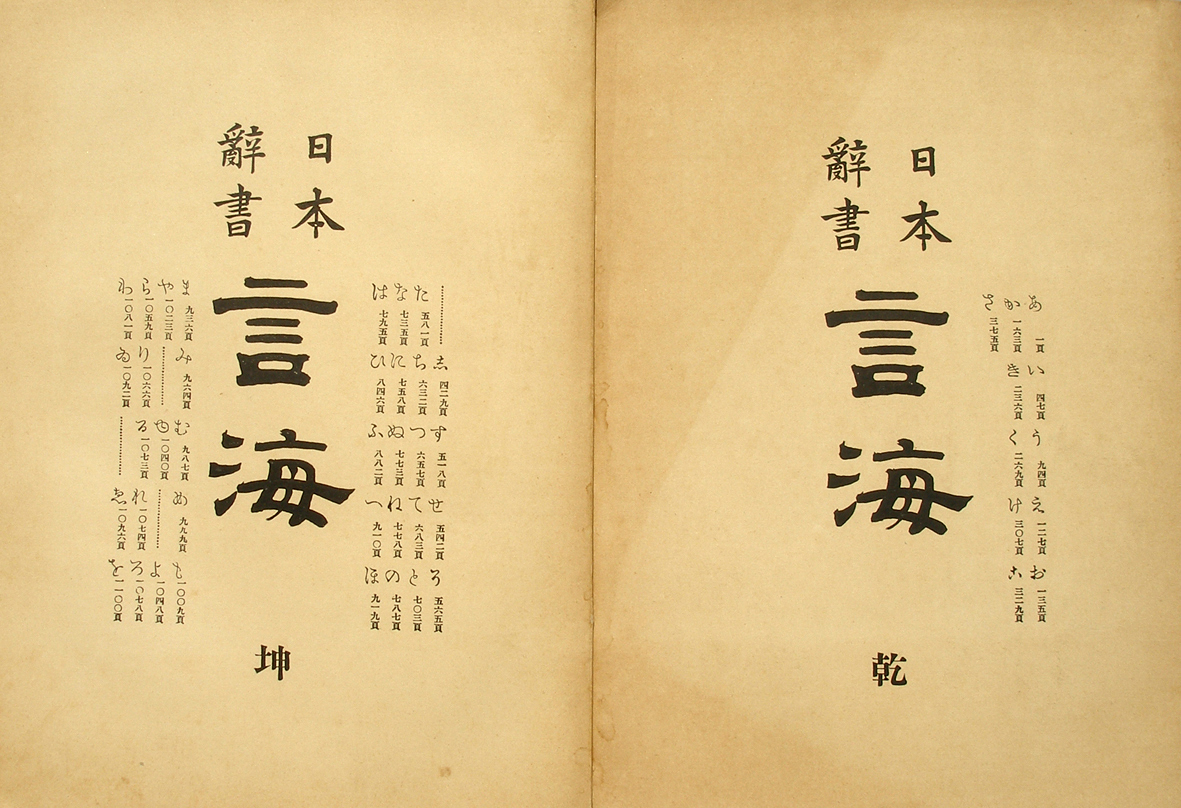 あ 一頁 い 四七頁 う 九四頁 え 一二七頁 お 一三五頁
か 一六三頁 き 二三六頁 く 二六九頁 け 三〇七頁 こ 三二九頁
さ 三七五頁
日本
辭書
言海
乾
し 四二九頁 す 五一八頁 せ 五四二頁 そ 五六五頁
た 五八一頁 ち 六三二頁 つ 六五七頁 て 六八三頁 と 七〇三頁
な 七三五頁 に 七五八頁 ぬ 七七三頁 ね 七七八頁 の 七八七頁
は 七九五頁 ひ 八四六頁 ふ 八八二頁 へ 九一〇頁 ほ 九一九頁
日本
辭書
言海
坤
ま 九三六頁 み 九六四頁 む 九八七頁 め 九九九頁 も 一〇〇九頁
や 一〇二三頁 ゆ 一〇四〇頁 よ 一〇四八頁
ら 一〇五九頁 り 一〇六六頁 る 一〇七三頁 れ 一〇七四頁 ろ 一〇七八頁
わ 一〇八一頁 ゐ 一〇九二頁 ゑ 一〇九六頁 を 一一〇〇頁